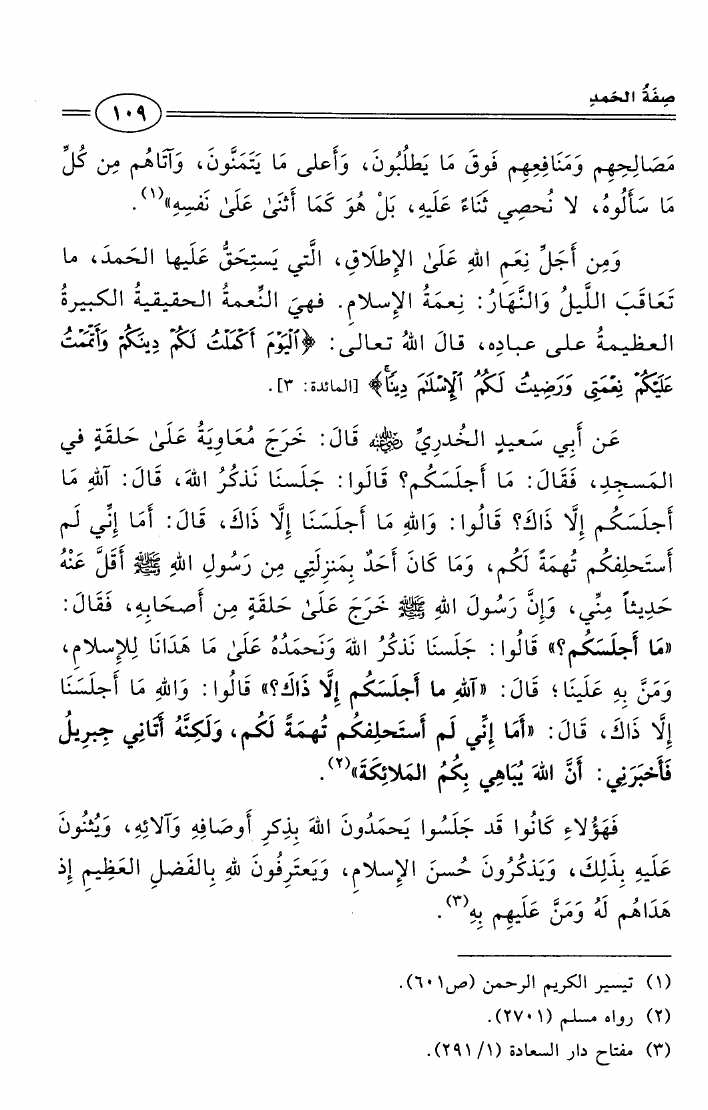 صِفَةُ الحَمدِ
١٠٩
مَصَالِحِهِم وَمَنَافِعِهِم فَوقَ مَا يَطلُبُونَ، وَأَعلى مَا يَتَمَنَّونَ، وَآتَاهُم مِن كُلِّ
مَا سَأَلُوهُ، لا نُحصِي ثَنَاءً عَلَيهِ، بَلْ هُوَ كَمَا أَثنَىٰ عَلَىٰ نَفسِهِ»(١).
وَمِن أَجَلِّ نِعَمِ اللهِ عَلَىٰ الإِطلَاقِ، الَّتي يَستِحَقُّ عَلَيها الحَمدَ، ما
تَعَاقَبَ اللَّيلُ وَالنَّهَارُ: نِعمَةُ الإِسلامِ. فهيَ النِّعمةُ الحقيقيةُ الكبيرةُ
العظيمةُ على عبادِه، قالَ اللهُ تعالى: ﴿ٱلۡيَوۡمَ أَكۡمَلۡتُ لَكُمۡ دِينَكُمۡ وَأَتۡمَمۡتُ
عَلَيۡكُمۡ نِعۡمَتِي وَرَضِيتُ لَكُمُ ٱلۡإِسۡلَٰمَ دِينٗاۚ﴾ [المائدة: ٣].
عَن أَبِي سَعيدٍ الخُدرِيِّ رضي الله عنه قَالَ: خَرَجَ مُعَاوِيَةُ عَلَىٰ حَلقَةٍ في
المَسجِدِ، فَقَالَ: مَا أَجلَسَكُم؟ قَالُوا: جَلَسنَا نَذكُرُ اللهَ، قَالَ: آللهِ مَا
أَجلَسَكُم إِلَّا ذَاكَ؟ قَالُوا: وَاللهِ مَا أَجلَسَنَا إِلَّا ذَاكَ، قَالَ: أَمَا إِنِّي لَم
أَستَحلِفكُم تُهمَةً لَكُم، وَمَا كَانَ أَحَدٌ بِمَنزِلَتِي مِن رَسُولِ اللهِ ﷺ أَقَلَّ عَنْهُ
حَدِيثاً مِنِّي، وَإِنَّ رَسُولَ اللهِ ﷺ خَرَجَ عَلَىٰ حَلقَةٍ مِن أَصحَابِهِ، فَقَالَ:
«مَا أَجلَسَكُم؟» قَالُوا: جَلَسنَا نَذكُرُ اللهَ وَنَحمَدُهُ عَلَىٰ مَا هَدَانَا لِلإِسلامِ،
وَمَنَّ بِهِ عَلَينَا؛ قَالَ: «آللهِ ما أَجلَسَكُم إِلَّا ذَاكَ؟» قَالُوا: وَاللهِ مَا أَجلَسَنَا
إِلَّا ذَاكَ، قَالَ: «أَمَا إِنِّي لَم أَستَحلِفكُم تُهمَةً لَكُم، وَلَكِنَّهُ أَتَانِي جِبرِيلُ
فَأَخبَرَنِي: أَنَّ اللهَ يُبَاهِي بِكُمُ المَلائِكَةَ»(٢).
فَهَؤُلاءِ كَانُوا قَد جَلَسُوا يَحمَدُونَ اللهَ بِذِكرِ أَوصَافِهِ وَآلائِهِ، وَيُثنُونَ
عَلَيهِ بِذَلِكَ، وَيَذكُرُونَ حُسنَ الإِسلامِ، وَيَعتَرِفُونَ للهِ بِالفَضلِ العَظِيمِ إِذ
هَدَاهُم لَهُ وَمَنَّ عَلَيهِم بِهِ(٣).
(١) تيسير الكريم الرحمن (ص٦٠١).
(٢) رواه مسلم (٢٧٠١).
(٣) مفتاح دار السعادة (١/ ٢٩١).